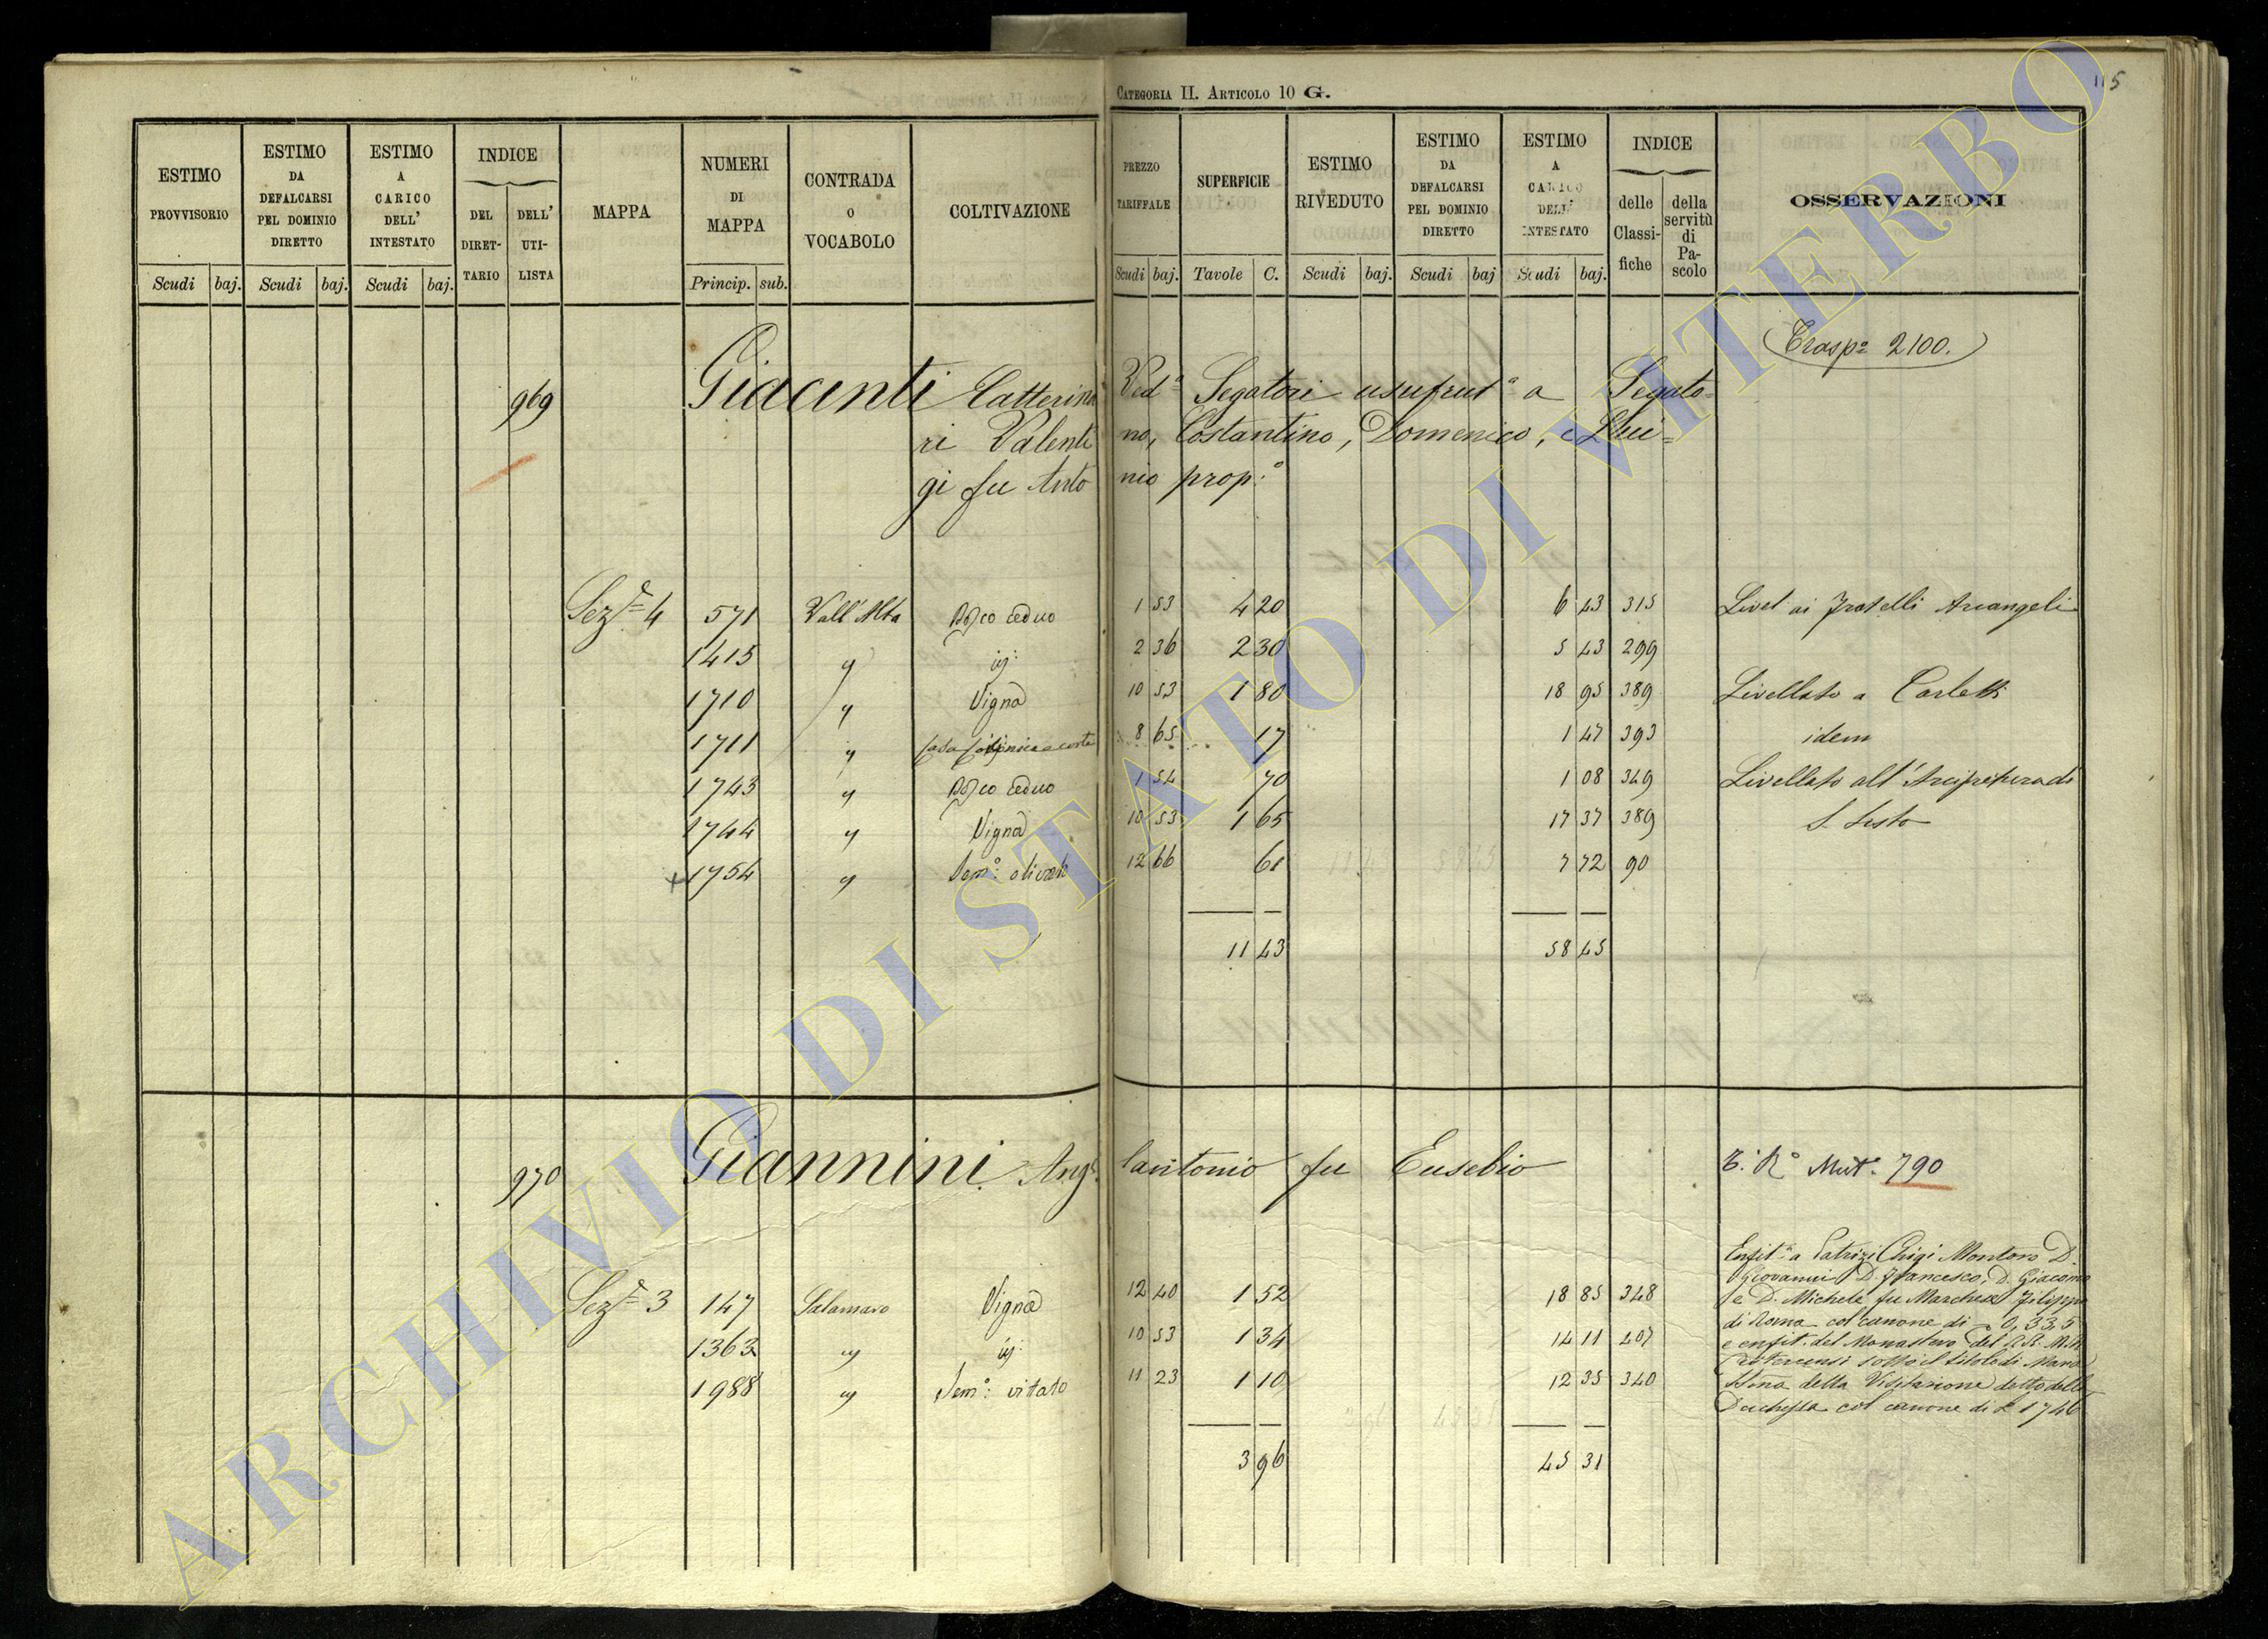 115
CATEGORIA II. ARTICOLO 10 G.
ESTIMO PROVVISORIO
ESTIMO DA DEFALCARSI PEL DOMINIO DIRETTO
ESTIMO A CARICO DELL' INTESTATO
INDICE
DEL DIRET-TARIO
DELL' UTI-LISTA
MAPPA
NUMERI DI MAPPA
CONTRADA O VOCABOLO
COLTIVAZIONE
PREZZO TARIFFALE
SUPERFICIE
ESTIMO RIVEDUTO
ESTIMO DA DEFALCARSI PEL DOMINIO DIRETTO
ESTIMO A CARICO DELL' INTESTATO
INDICE
delle Classi-fiche
della servitù di Pa-scolo
OSSERVAZIONI
Scudi baj. Scudi baj. Scudi baj. Princip. sub. Scudi baj. Tavole C. Scudi baj. Scudi baj Scudi baj.
Trasp.o 2100.
969 Giacinti Catterina Ved.a Segatori usufrut.a a Segato=
ri Valenti no, Costantino, Domenico, e Lui=
gi fu Anto nio prop:
Sez.e 4 571 Vall'Alta Bosco ceduo 1 53 4 20 6 43 315 Livel. ai fratelli Arcangeli
1415 " id: 2 36 2 30 5 43 299
1710 " Vigna 10 53 1 80 18 95 389 Livellato a Carletti
1711 " Casa 8 65 17 1 47 393 idem
1743 " Bosco ceduo 1 54 70 1 08 349 Livellato all'Arcipretura di
1744 " Vigna 10 53 1 65 17 37 389 S. Sisto
1754 " Sem.o olivato 12 66 61 7 72 90
11 43 58 45
970 Giannini Ang. lantonio fu Eusebio
Mut. 790
Enfit. a Patrizi Chigi Montoro D.
Giovanni D. Francesco, D. Giacomo
e D. Michele fu Marchese Filippo
di Roma col canone di 0,335
e enfit. del Monastero del
sotto il titolo di Maria
SSma della Visitazione detto della
Duchessa col canone di £ 1746
Sez.e 3 147 Salamaro Vigna 12 40 1 52 18 85 348
1363 " id: 10 53 1 34 14 11 407
1988 " Sem.o vitato 11 23 1 10 12 35 340
3 96 45 31
ARCHIVIO DI STATO DI VITERBO